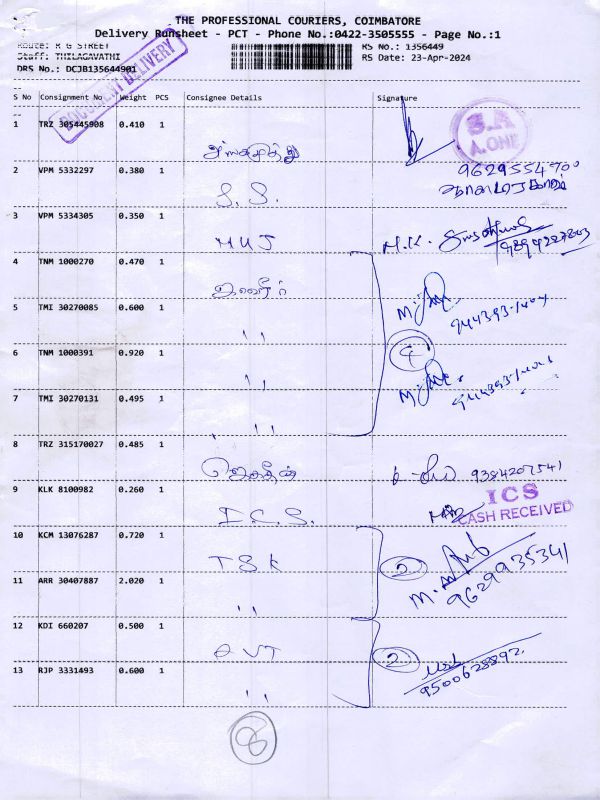 THE PROFESSIONAL COURIERS, COIMBATORE
Delivery Runsheet - PCT - Phone No.:0422-3505555 - Page No.:1
Route: R G STREET RS No.: 1356449
Staff: THILAGAVATHI RS Date: 23-Apr-2024
DRS No.: DCJB135644901
DOCUMENT DELIVERY
S No Consignment No Weight PCS Consignee Details Signature
1 TRZ 305445908 0.410 1
S.A
A.ONE
2 VPM 5332297 0.380 1 S.S. 9629554700
3 VPM 5334305 0.350 1 MUJ M.K.
4 TNM 1000270 0.470 1
5 TMI 30270085 0.600 1 ''
6 TNM 1000391 0.920 1 '' 4
7 TMI 30270131 0.495 1 ''
8 TRZ 315170027 0.485 1 9384207541
9 KLK 8100982 0.260 1 I.C.S.
ICS
CASH RECEIVED
10 KCM 13076287 0.720 1 TSK 2
9629935341
11 ARR 30407887 2.020 1 ''
12 KDI 660207 0.500 1 2
9500628892
13 RJP 3331493 0.600 1 ''
8